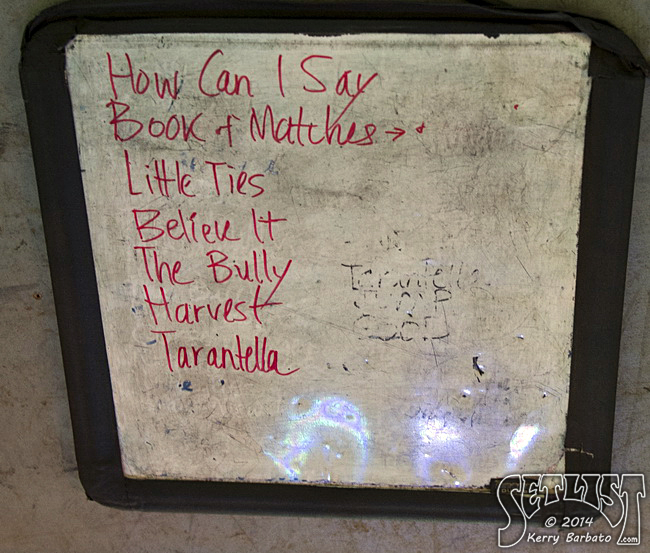 How Can I Say
Book of Matches →
Little Ties
Believe It
The Bully
Harvest
Tarantella
Tarantella
SETLIST
© 2014
Kerry Barbato .com